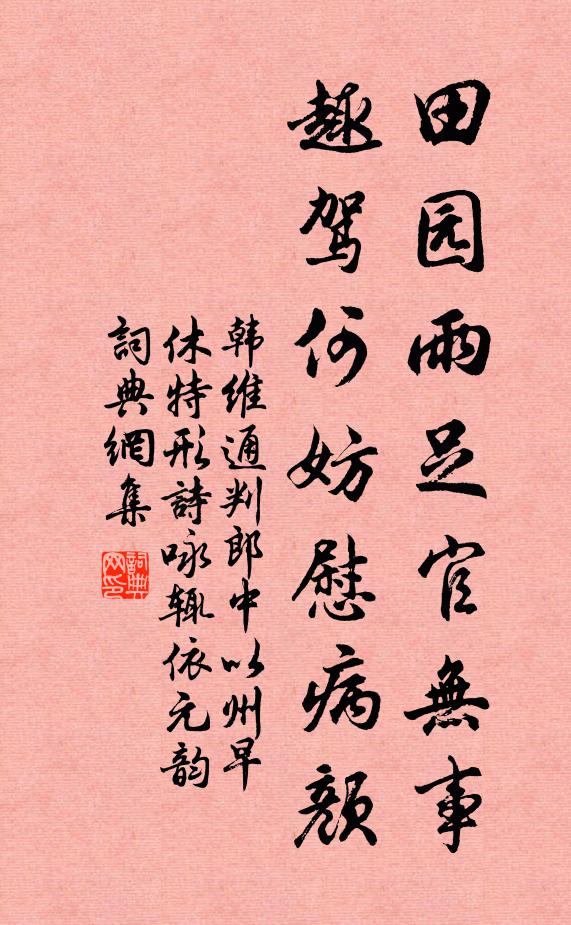 田园雨足官無事
趣驾何妨慰病顏
韩维通判郎中以州早
休特形詩咏辄依元韵
詞典網集
詞典网印